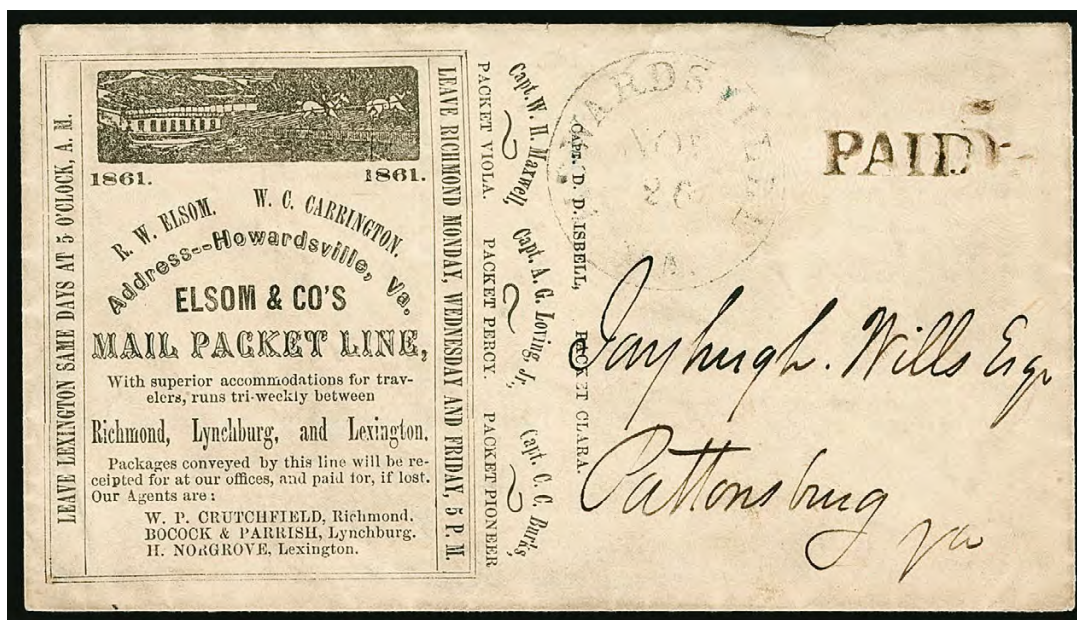 LEAVE LEXINGTON SAME DAYS AT 5 O'CLOCK, A. M.
1861. 1861.
R. W. ELSOM. W. C. CARRINGTON.
Address--Howardsville, Va.
ELSOM & CO'S
MAIL PACKET LINE,
With superior accommodations for trav-
elers, runs tri-weekly between
Richmond, Lynchburg, and Lexington.
Packages conveyed by this line will be re-
ceipted for at our offices, and paid for, if lost.
Our Agents are:
W. P. CRUTCHFIELD, Richmond.
BOCOCK & PARRISH, Lynchburg.
H. NORGROVE, Lexington.
LEAVE RICHMOND MONDAY, WEDNESDAY AND FRIDAY, 5 P. M.
PACKET VIOLA. PACKET PERCY. PACKET PIONEER
Capt. W. H. Maxwell, Capt. A. G. Loving, Jr, Capt. C. C. Burks,
CAPT. D. D. ISBELL, PACKET CLARA.
WARDSVILLE
NOV
26
VA.
PAID
Wills Esqr
Pattonsburg
va